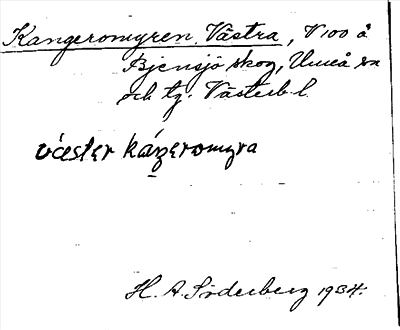 Kangeromyren Västra, V 100 å
Bjensjö skog, Umeå sn
och tg. Västerb. l.
väster káŋeromyra
H. A. Söderberg 1934.